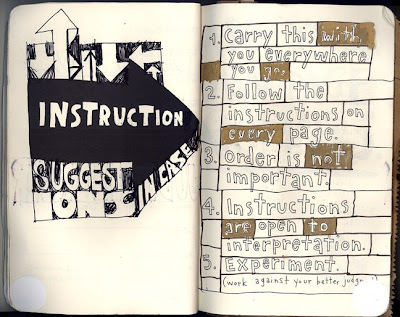 INSTRUCTION
SUGGEST
IONS
IN CASE
1. Carry this with
you everywhere
you go.
2. Follow the
instructions on
every page.
3. Order is not
important.
4. Instructions
are open to
interpretation.
5. Experiment.
(work against your better